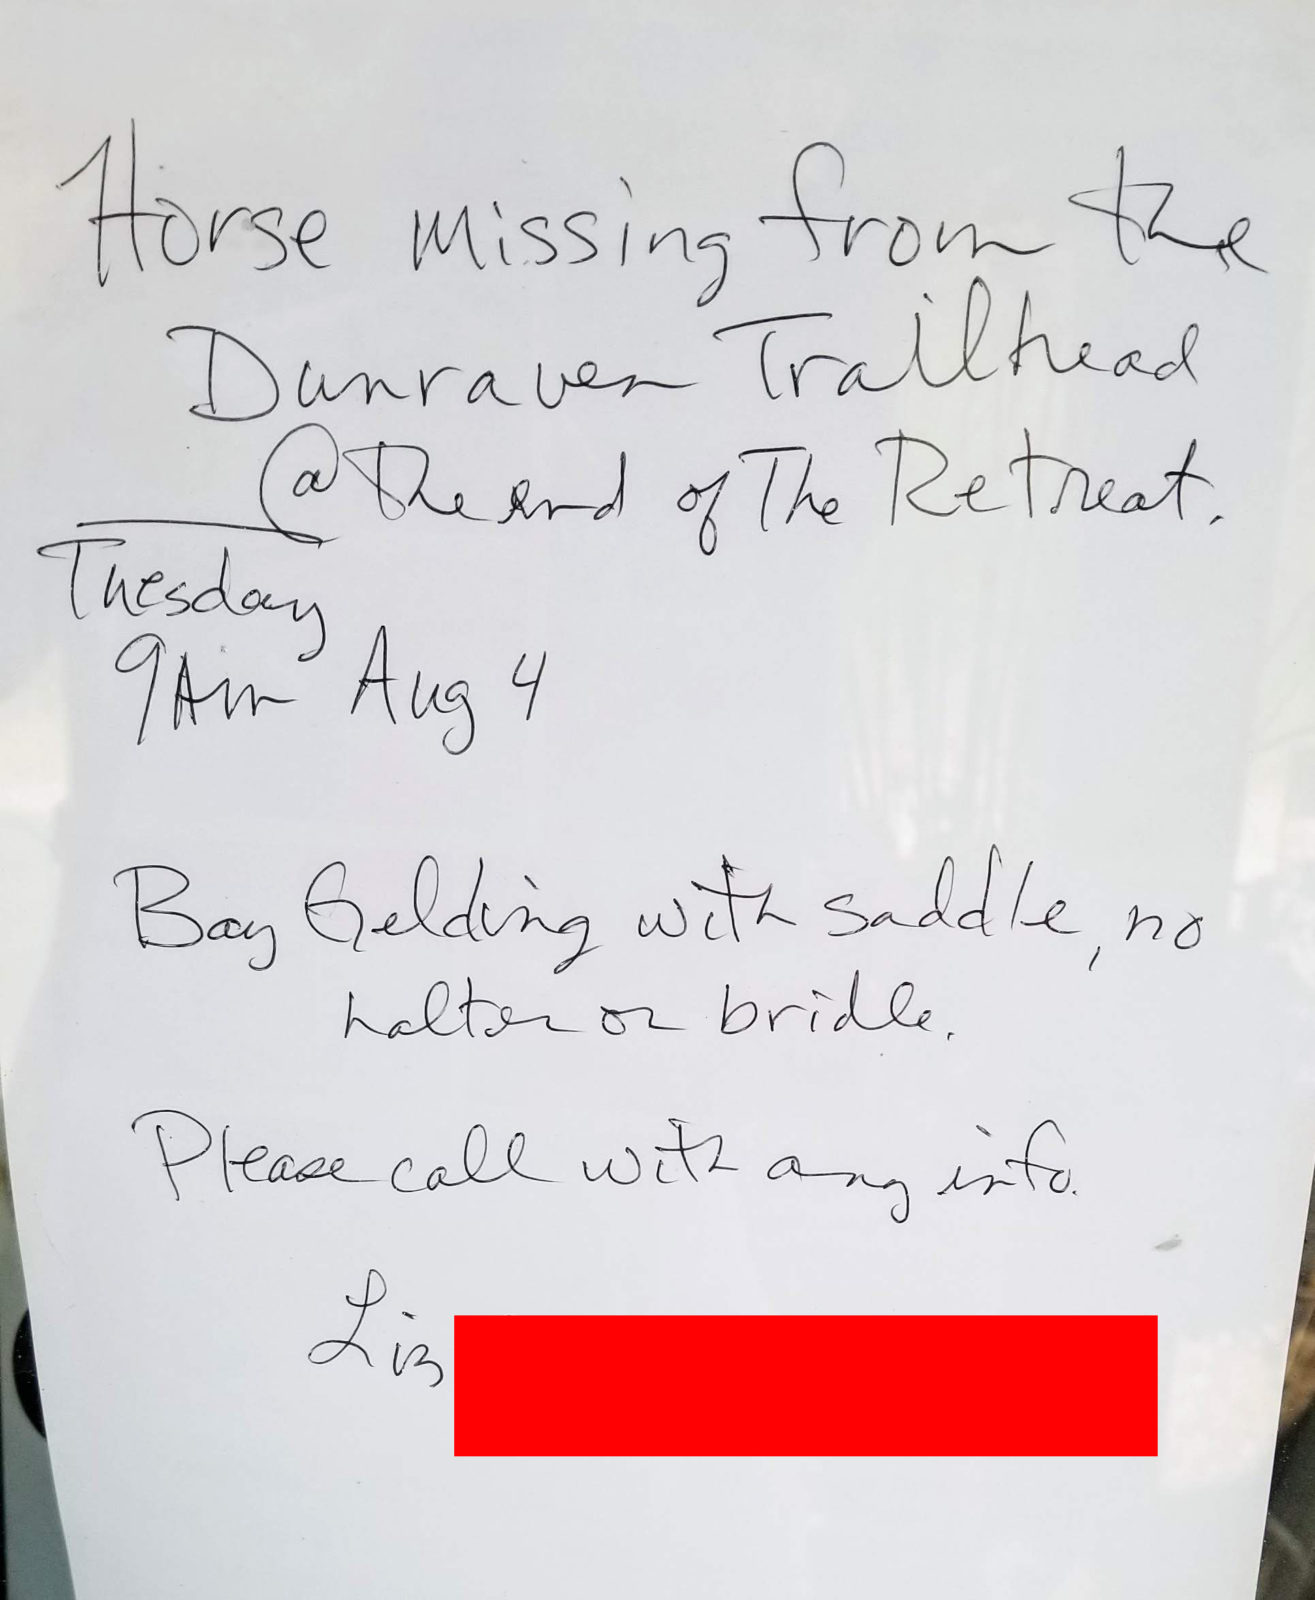 Horse missing from the
Dunraven Trailhead
@ the end of The Retreat.
Tuesday
9Am Aug 4
Bay Gelding with saddle, no
halter or bridle.
Please call with any info.
Liz